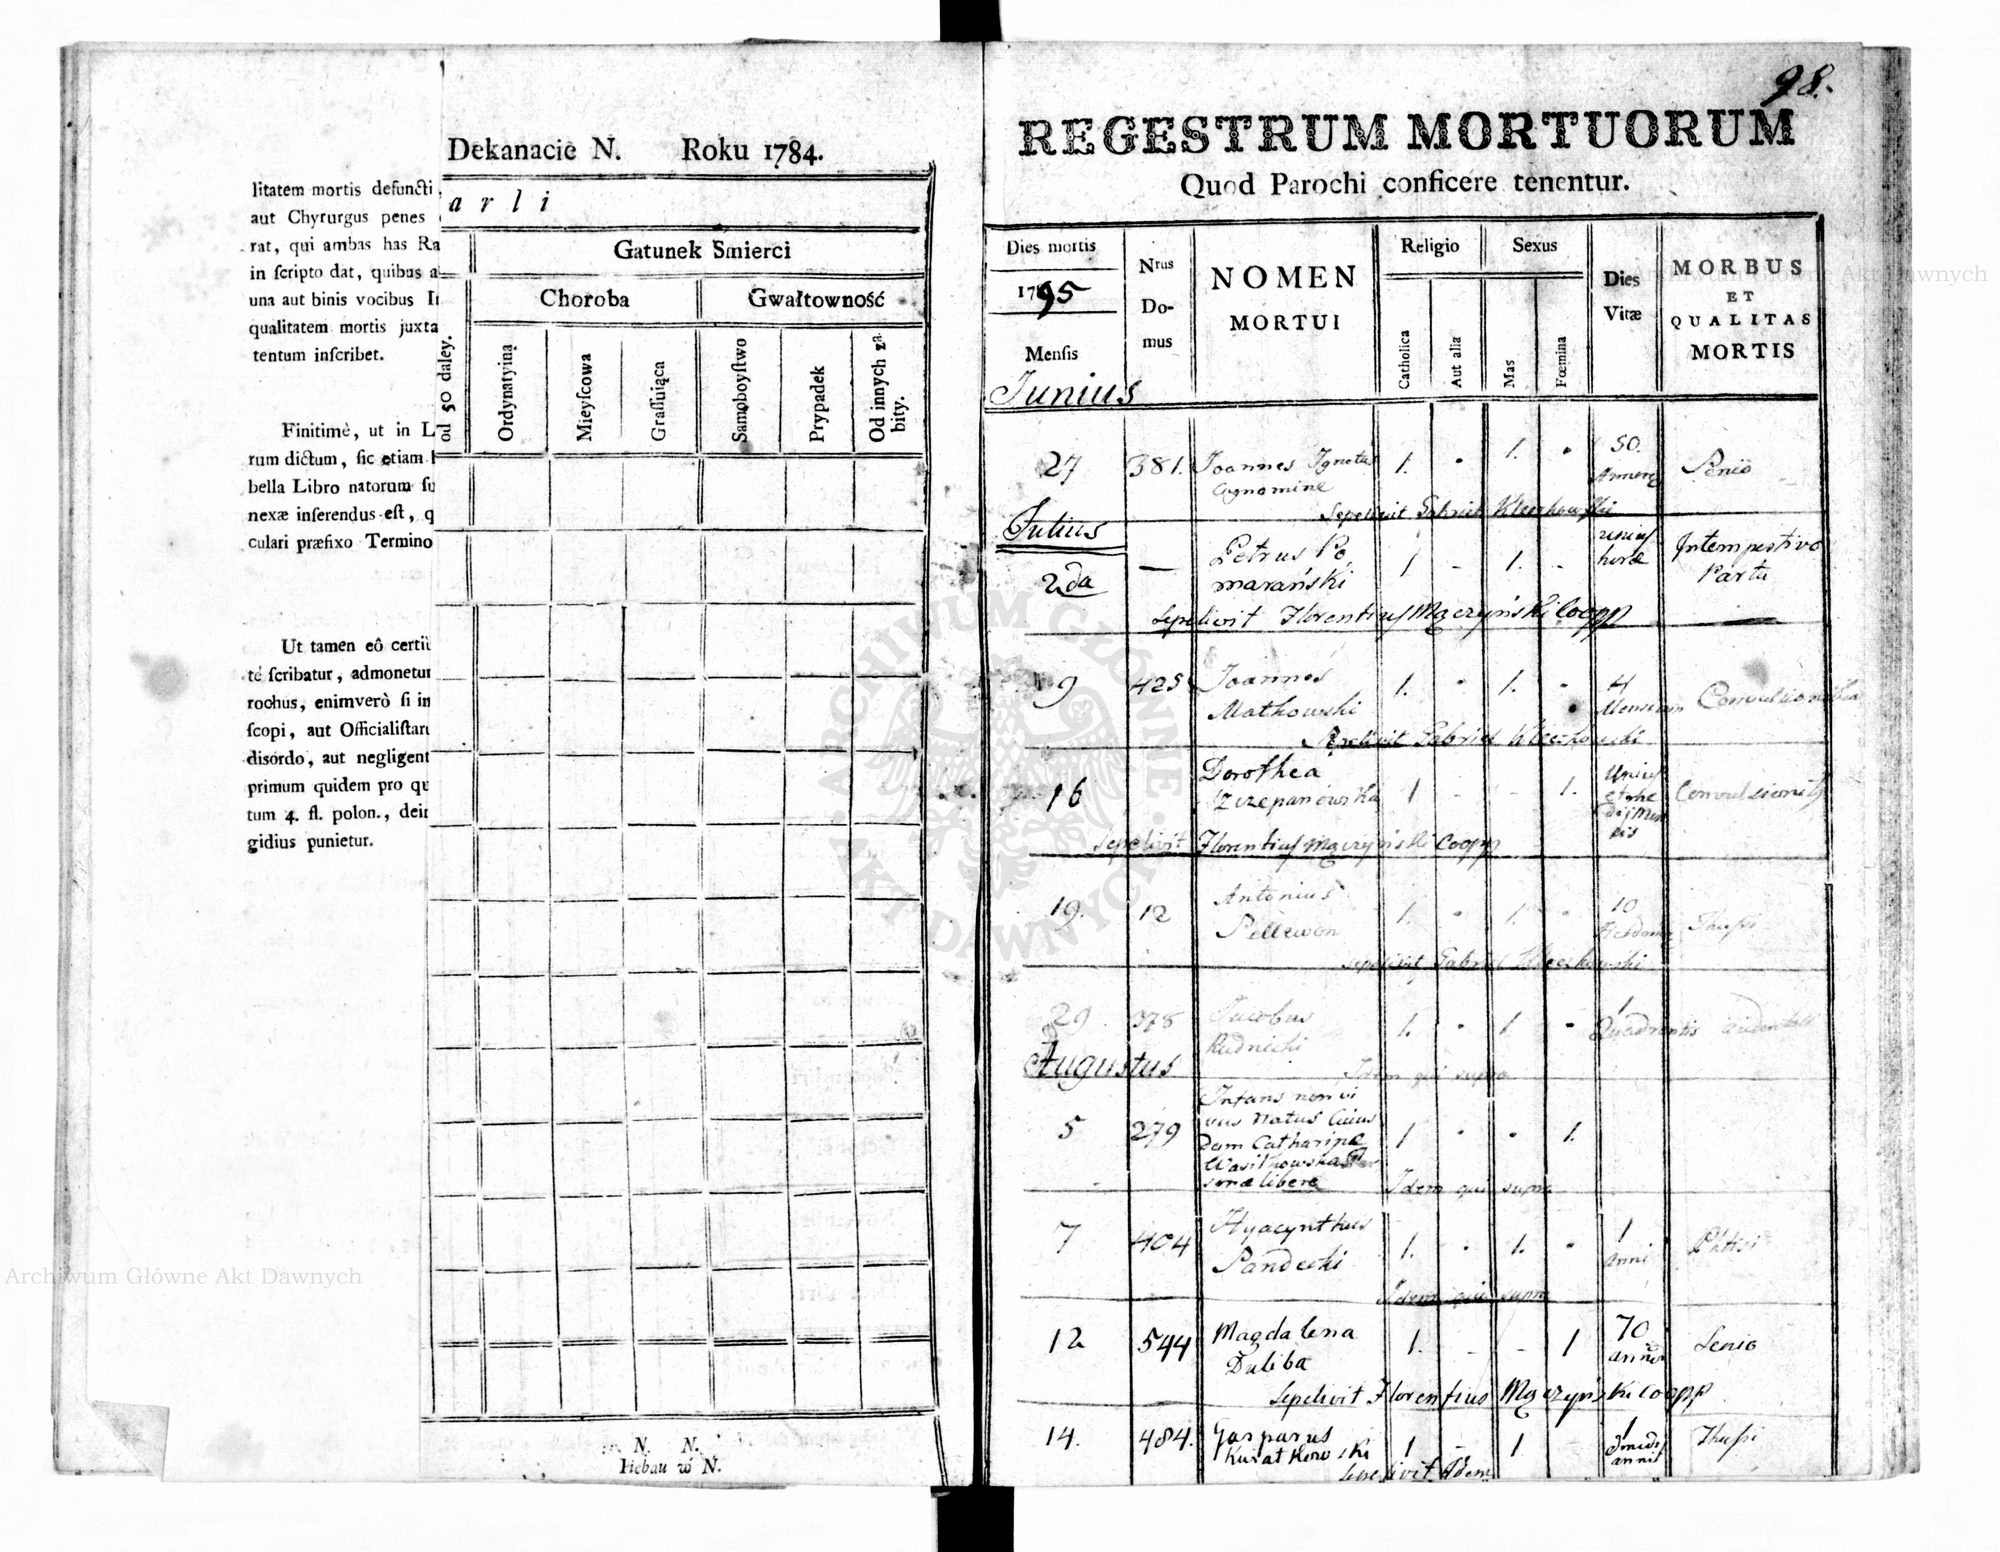 98.
Dekanacie N. Roku 1784.
litatem mortis defuncti
aut Chyrurgus penes
rat, qui ambas has Ra
in ſcripto dat, quibus a
una aut binis vocibus
qualitatem mortis juxta
tentum inſcribet.
Finitimè, ut in L
rum dictum, ſic etiam
bella Libro natorum ſu
nexæ inſerendus eſt, q
culari præfixo Termino
Ut tamen eô certiù
tè ſcribatur, admonetur
rochus, enimverò ſi in
ſcopi, aut Officialiſtaru
disordo, aut negligent
primum quidem pro qu
tum 4. fl. polon., dein
gidius punietur.
arli
Gatunek Smierci
Choroba Gwałtowność
od 50 daley.
Ordynaryiną
Mieyſcowa
Graſſuiąca
Samoboyſtwo
Przypadek
Od innych za-
bity.
N. N.
Plebau w N.
REGESTRUM MORTUORUM
Quod Parochi conficere tenentur.
Dies mortis
1795
Menſis
Junius
Nrus
Do-
mus
NOMEN
MORTUI
Religio
Catholica
Aut alia
Sexus
Mas
Fœmina
Dies
Vitæ
MORBUS
ET
QUALITAS
MORTIS
27 381. Joannes Ignotus 1. 1. 50.
Cognomine
Sepelivit Gabriel Kleczkowski
Julius
2da — Petrus Po 1 - 1. - horæ Intempestivo
marański Partu
Sepelivit Florentius Mączyński Coopp
9 425 Joannes 1. 1. 4
Mathowski Mensium Convulsionibus
Sepelivit Gabriel Kleczkowski
16 Dorothea 1 - - 1.
Szczepanowska
Sepelivit Florentius Mączyński Coopp
19. 12 Antonius 1. 1. 10
Sepelivit Gabriel Kleczkowski
29 378 Jacobus 1. 1. 1
Rudnicki Quadrantis
Idem qui supra
Augustus
5 279 Infans non vi 1 1.
vus natus Cuius
dam Catharinæ
sonæ liberæ
Idem qui supra
7 404 Hyacynthus 1. 1. 1
Pandecki anni Phtisi
Idem qui supra
12 544 Magdalena 1. - - 1 70
Duliba Senio
Sepelivit Florentius Mączyński Coopp
14. 484. Gasparus 1 - 1. 1 Thussi
Kwiatkowski
Sepelivit Idem
Archiwum Główne Akt Dawnych
Archiwum Główne Akt Dawnych
ARCHIWUM GŁÓWNE AKT DAWNYCH